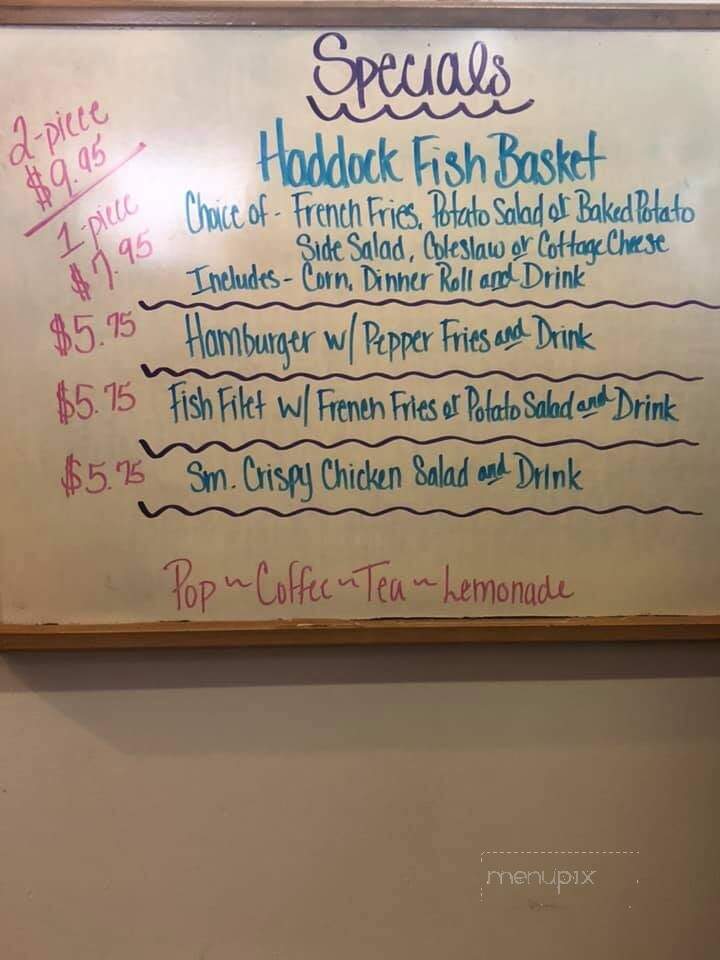 Specials
2-piece
$9.95
1-piece
$7.95
Haddock Fish Basket
Choice of - French Fries, Potato Salad or Baked Potato
Side Salad, Coleslaw or Cottage Cheese
Includes - Corn, Dinner Roll and Drink
$5.75 Hamburger w/ Pepper Fries and Drink
$5.75 Fish Filet w/ French Fries or Potato Salad and Drink
$5.75 Sm. Crispy Chicken Salad and Drink
Pop ~ Coffee ~ Tea ~ Lemonade
menupix